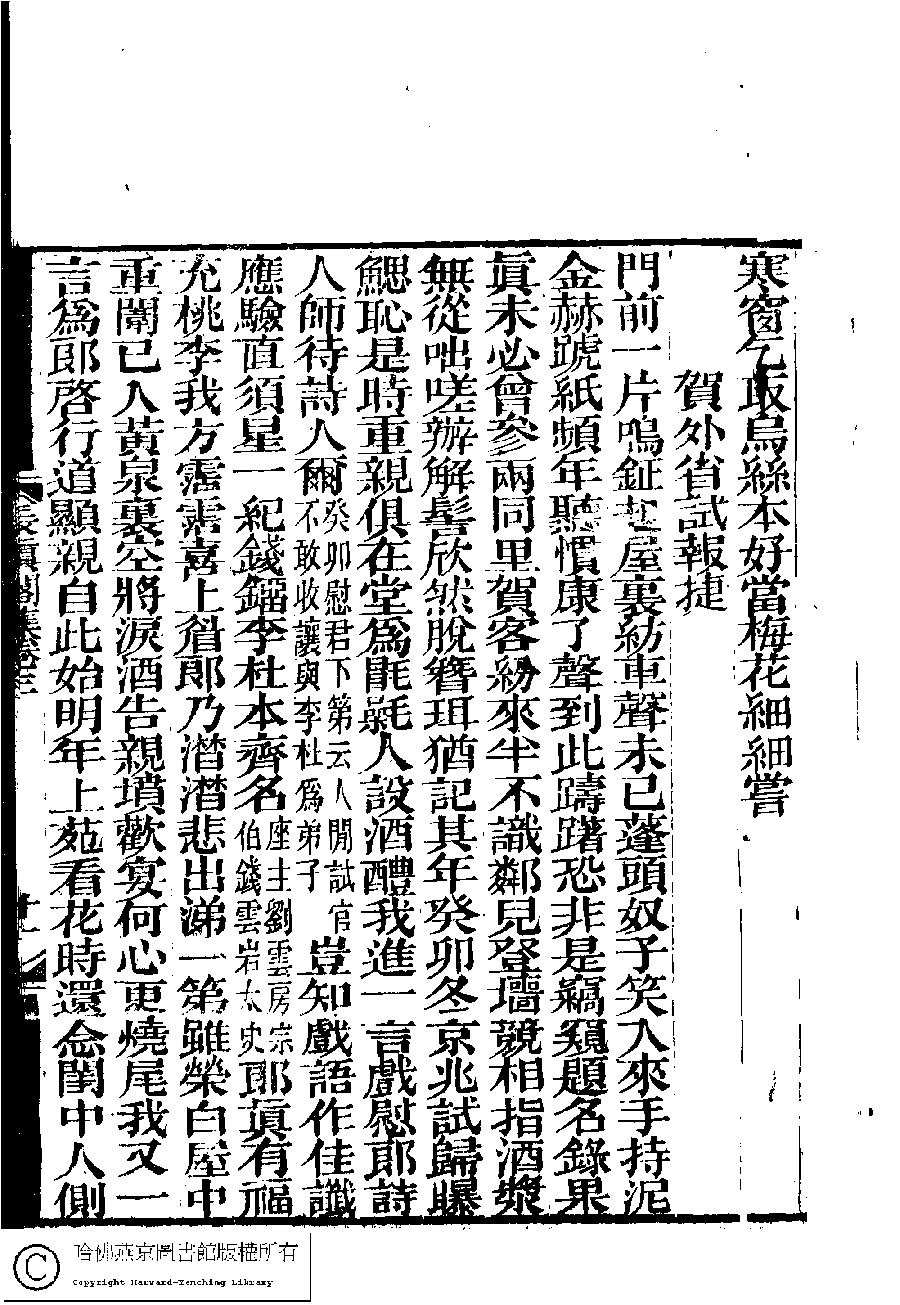 寒窗瓦取烏絲本好當梅花細細嘗
賀外省試報捷
門前一片鳴鉦起屋裏紡車聲未已蓬頭奴子笑入來手持泥
金赫蹏紙頻年聽慣康了聲到此躊躇恐非是竊窺題名錄果
眞未必曾參兩同里賀客紛來半不識鄰兒登墻競相指酒漿
無從咄嗟辦解髻欣然脫簪珥猶記其年癸卯冬京兆試歸曝
鰓恥是時重親俱在堂爲㲪毹人設酒醴我進一言戲慰郎詩
人師待詩人爾癸卯慰君下第云人閒試官不敢收讓與李杜爲弟子豈知戲語作佳讖
應驗直須星一紀錢鎦李杜本齊名座主劉雲房宗伯錢雲岩太史郎眞有福
充桃李我方霑霑喜上眉郎乃潸潸悲出涕一第雖榮白屋中
重闈已入黃泉裏空將淚酒告親墳歡宴何心更燒尾我又一
言爲郎啓行道顯親自此始明年上苑看花時還念閨中人側
長眞閣集卷三
十一
哈佛燕京圖書館版權所有
Copyright Harvard-Yenching Library